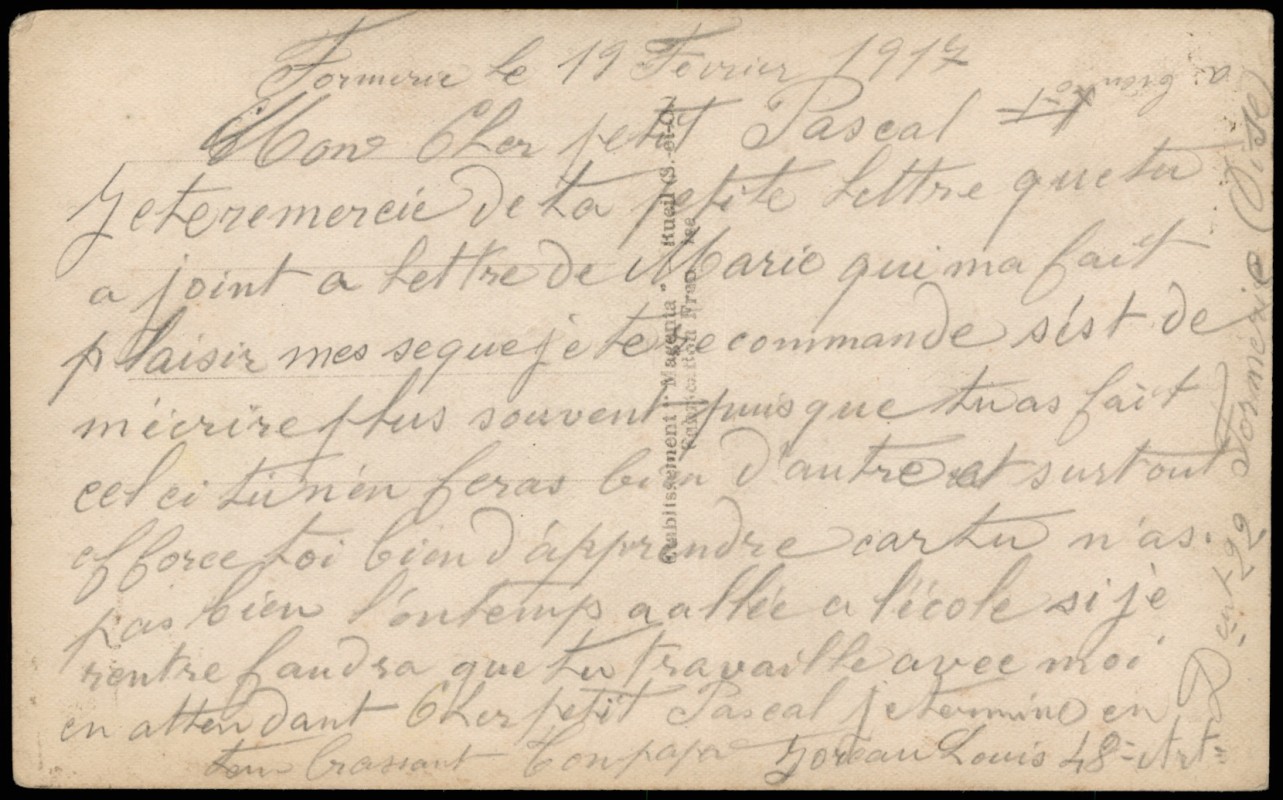 Formerie le 19 Fevrier 1917
Mon Cher petit Pascal
Je te remercie de ta petite lettre que tu
a joint a lettre de Marie qui ma fait
plaisir mes seque je te recommande sést de
mécrire plus souvent puis que tu as fait
cel ci tu n'en feras bien d'autre et surtout
efforce toi bien d'apprendre car tu n'as.
pas bien l'ontemp a allée a l'école si je
rentre faudra que tu travaille avec moi
en attendant Cher petit Pascal je termine en
Ton papa Joreau Louis 48e Art
22 Formérie (Oise)
a bientot
Etablissement "Magenta" Rueil (S.-et-O.)
Fabrication